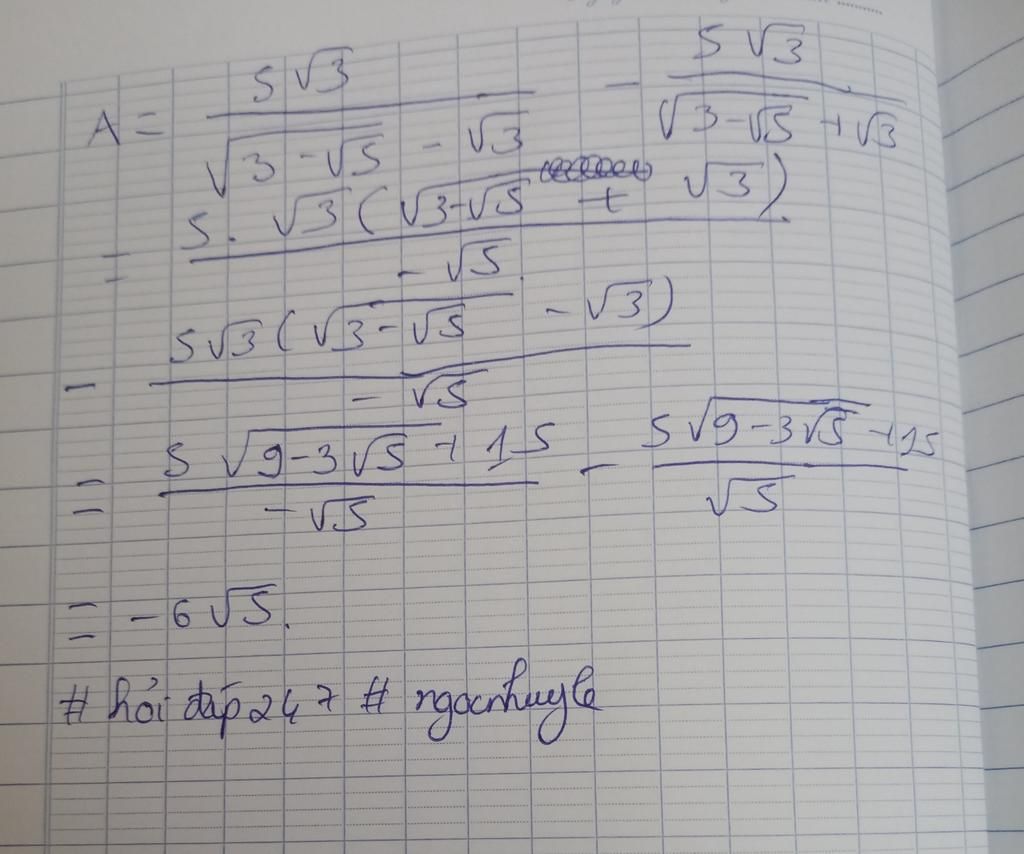 A = 5√3 / (√(3-√5) - √3) - 5√3 / (√(3-√5) + √3)
= 5.√3(√(3-√5) + √3) / -√5
- 5√3(√(3-√5) - √3) / -√5
= (5√(9-3√5) + 15) / -√5 - (5√(9-3√5) + 15) / √5
= -6√5.
# hỏi đáp 247 # ngocnhuyle